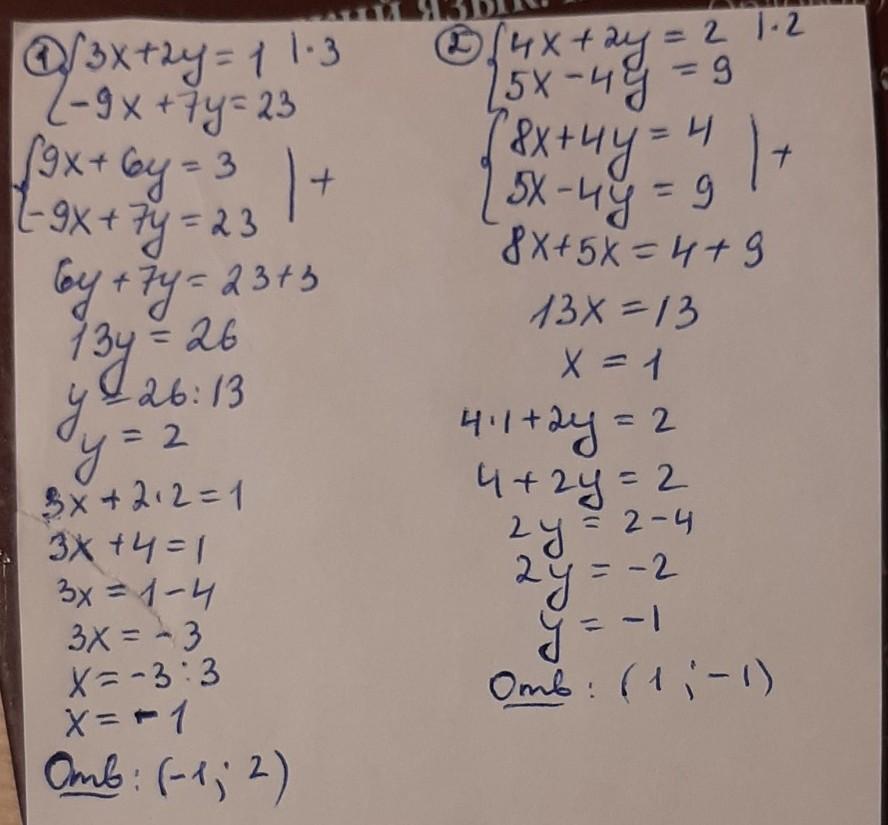 ЯЗЫК.
① {3x+2y=1 |·3
-9x+7y=23
{9x+6y=3 | +
-9x+7y=23
6y+7y=23+3
13y=26
y=26:13
y=2
3x+2·2=1
3x+4=1
3x=1-4
3x=-3
x=-3:3
x=-1
Отв: (-1; 2)
② {4x+2y=2 |·2
5x-4y=9
{8x+4y=4 | +
5x-4y=9
8x+5x=4+9
13x=13
x=1
4·1+2y=2
4+2y=2
2y=2-4
2y=-2
y=-1
Отв: (1;-1)